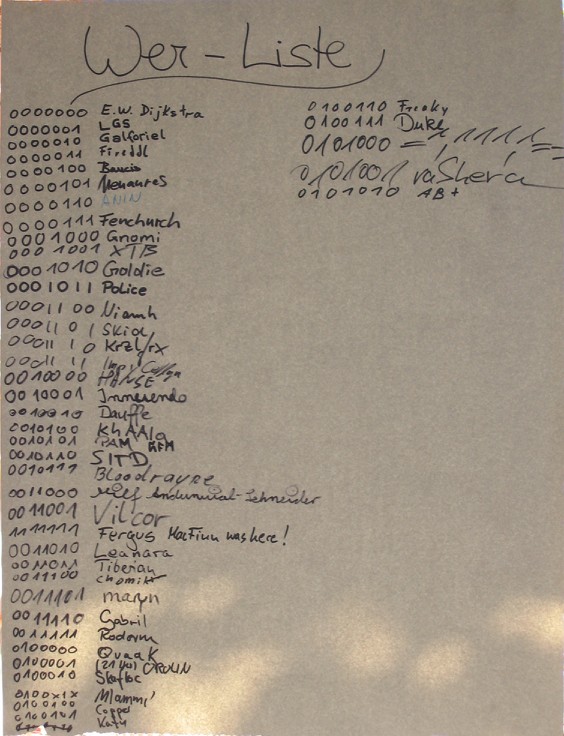 Wer-Liste
0000000 E.W. Dijkstra
0000001 LGS
0000010 Galforiel
0000011 Fireddl
0000100
0000101
0000110 ANIN
0000111 Fenchurch
0001000 Gnomi
0001001 XTB
0001010 Goldie
0001011 Police
0001100 Niamh
0001101 Skid
0001110 Krzl/rx
0001111
0010000 HÖNSE
0010001 Innuendo
0010010 Dauffe
0010100
0010101 PAM
0010110 SITD
0010111 Bloodrayne
0011000
0011001 Vilcor
1111111 Fergus MacFinn was here!
0011010 Leanara
0011011 Tiberian
0011100 chomikr
0011101 maryn
0011110 Gabril
0011111 Rodorm
0100000 Quaak
0100001 (2140)
0100010
0100x1x Mlammi'
0100100 Coppel
0100101 Katy
0100110 Freaky
0100111 Duke
0101000
0101001 raShera
0101010 AB+